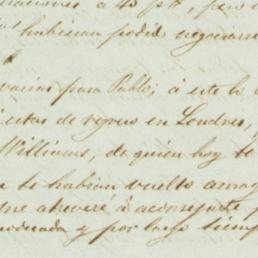 a 40 p%, pero
habian podido negociarse
varias para Pablo; á este lo
estas de regreso en Londres,
Williams, de quien hoy te
te habian vuelto amag
me atreveré á aconsejarte
moderada y por largo tiempo